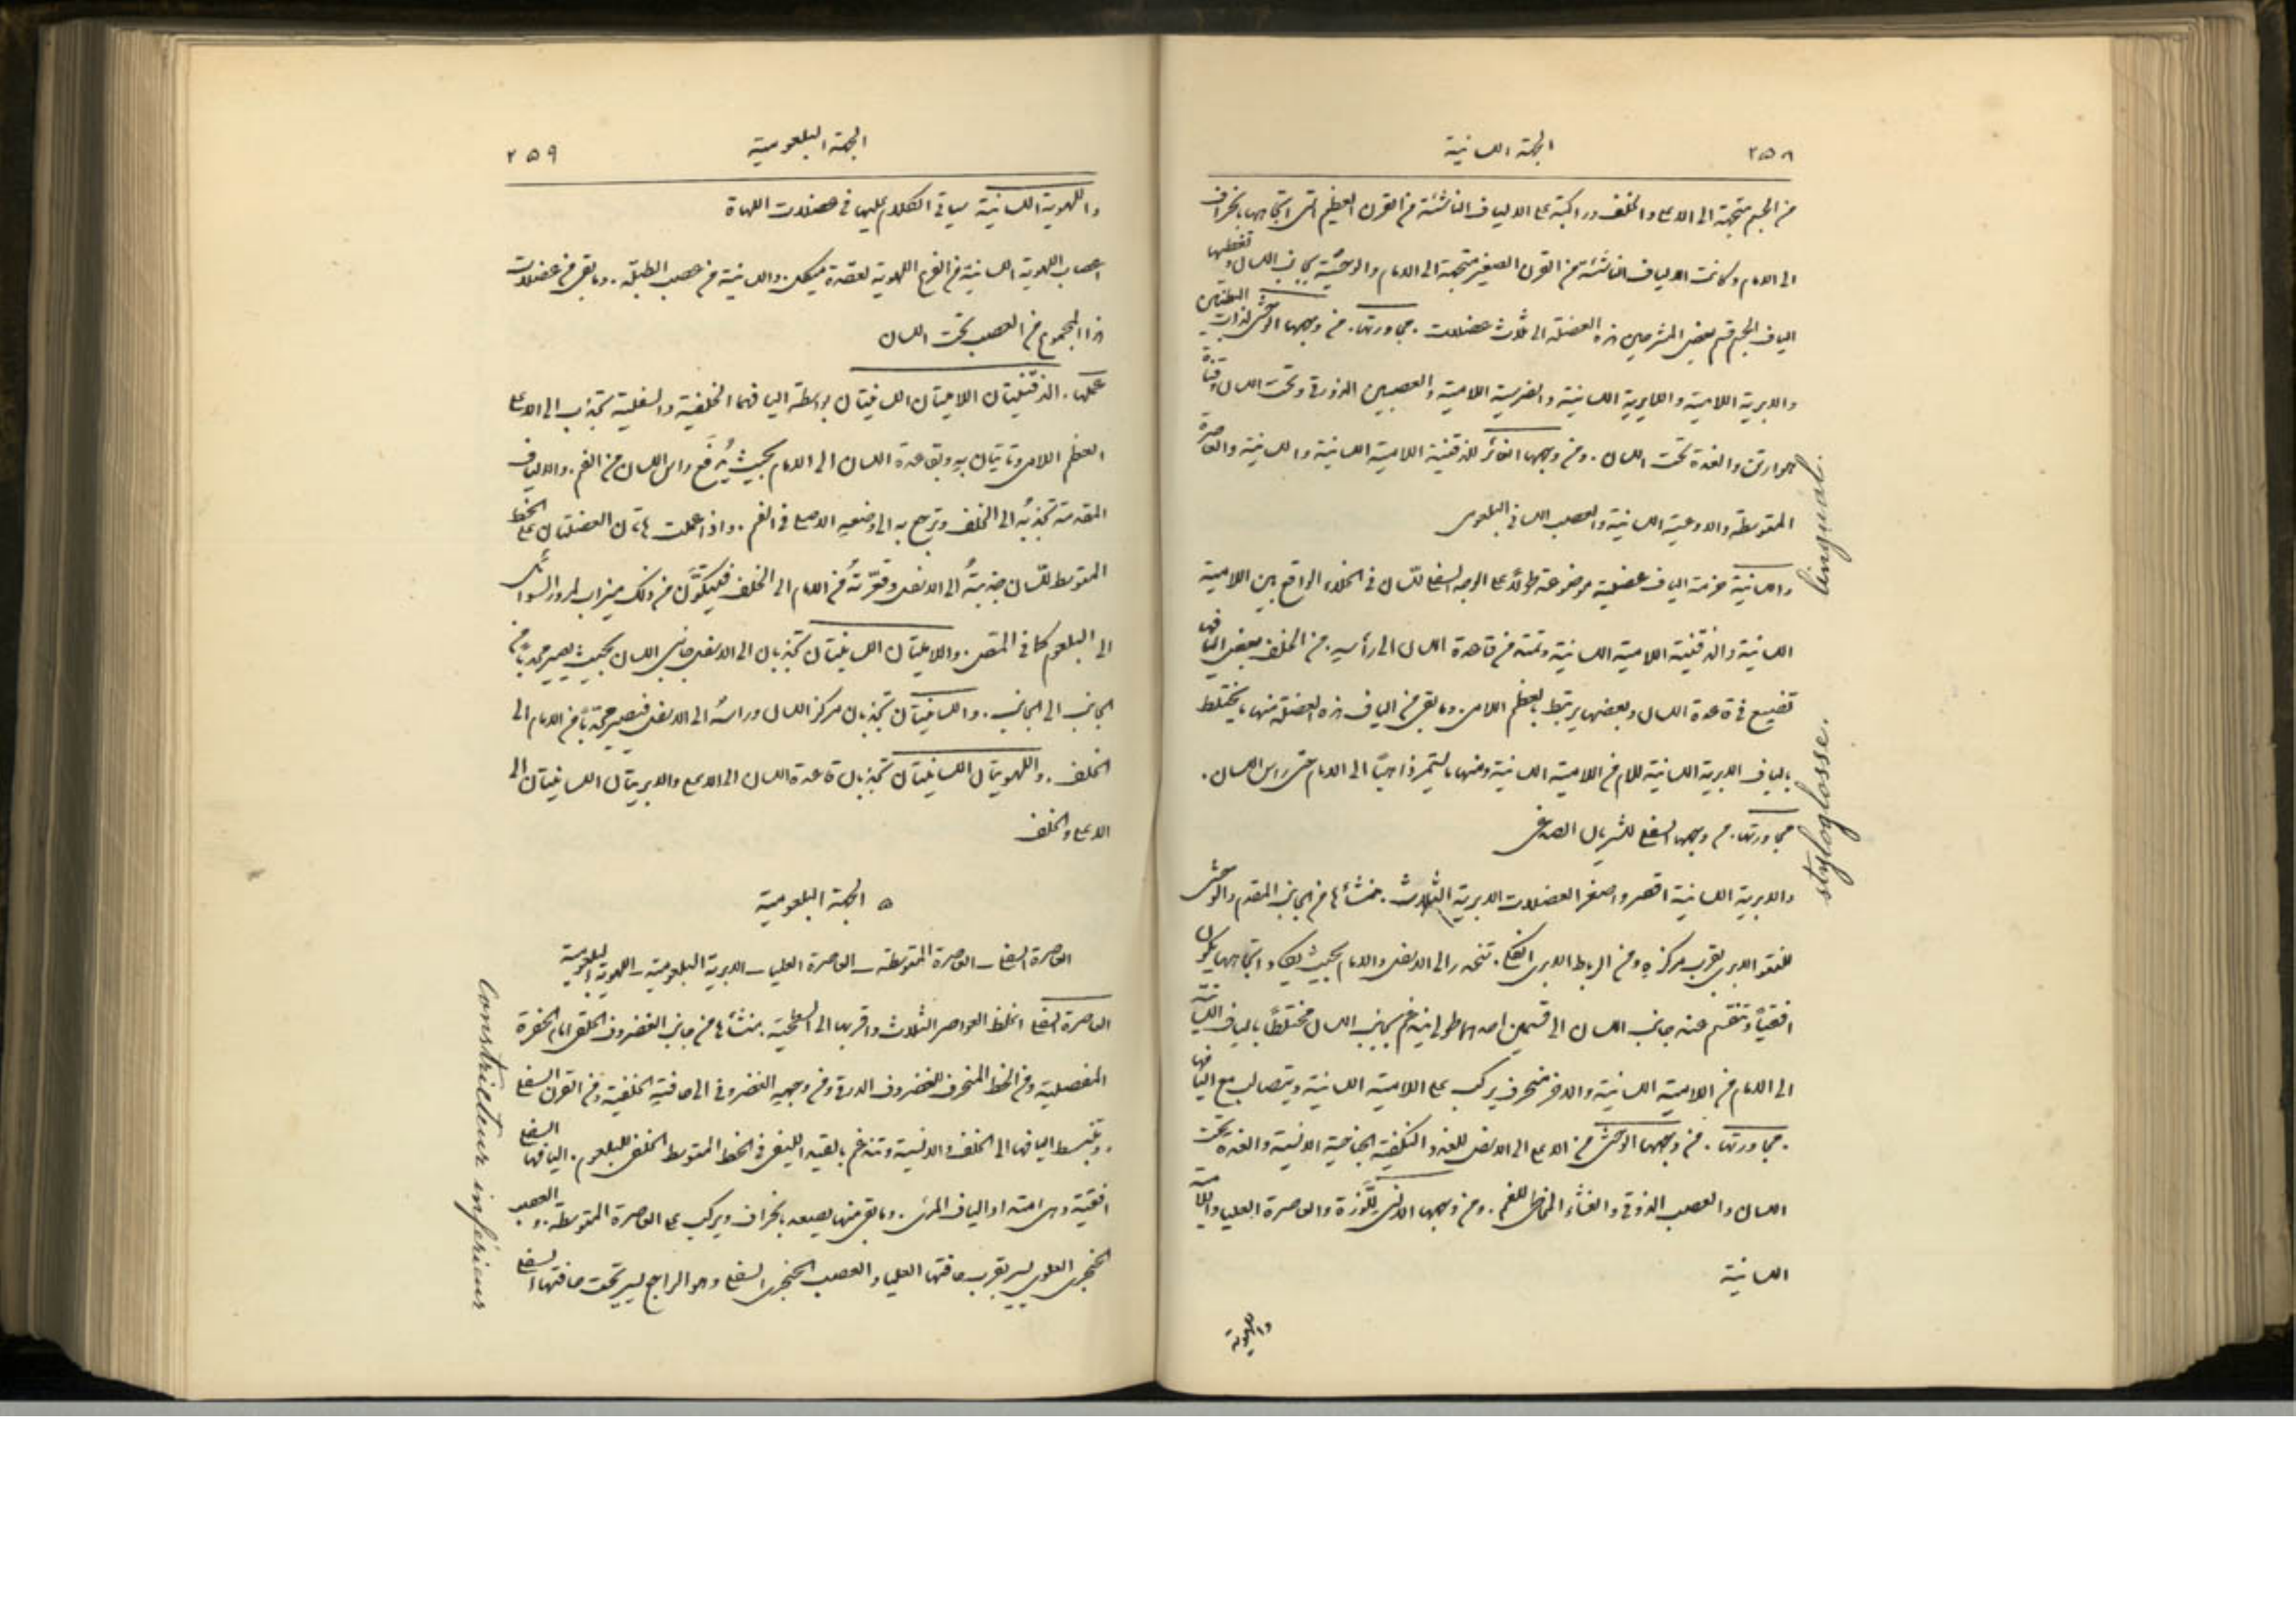 ٢٥٨
الجهة اللسانية
من الجسم متجهة الى الاعلى والخلف وراكبة على الالياف الناشئة من القرن العظيم التي اتجاهها بانحراف
الى الامام وكانت الالياف الناشئة من القرن الصغير متجهة الى الامام والوحشية بجانب اللسان وتغطيها
الياف الجسم قسم بعض المشرحين هذه العضلة الى ثلاث عضلات . مجاورتها . من وجهها الوحشي لذات البطنين
والابرية اللامية والابرية اللسانية والضرسية اللامية والعصبين الذوقي وتحت اللسان وقناة
وارتن والغدة تحت اللسان . ومن وجهها الغائر للذقنية اللامية اللسانية واللسانية والعاصرة
المتوسطة والاوعية اللسانية والعصب اللساني البلعومي
واللسانية حزمة الياف عضلية موضوعة طولاً على الوجه السفلي للسان في الخلاء الواقع بين اللامية
اللسانية والذقنية اللامية اللسانية وممتدة من قاعدة اللسان الى رأسه . من الخلف بعض اليافها
تضيع في قاعدة اللسان وبعضها يرتبط بالعظم اللامي . وما بقي من الياف هذه العضلة منها ما يختلط
بالياف الابرية اللسانية للامام من اللامية اللسانية ومنها ما يستمر ذاهباً الى الامام حتى رأس اللسان .
مجاورتها . من وجهها السفلي للشريان الصدغي
والابرية اللسانية اقصر واصغر العضلات الابرية الثلاث . منشأها من الجانب المقدم والوحشي
للنتو الابري بقرب مركزه ومن الرباط الابري الفكي . تنحدر الى الاسفل والامام بحيث يكاد اتجاهها يكون
افقياً وتنقسم عند جانب اللسان الى قسمين احدهما طولي يندغم بجانب اللسان مختلطاً بالياف اللسانية
الى الامام من اللامية اللسانية والاخر منحرف يركب على اللامية اللسانية ويتصالب مع اليافها
. مجاورتها . من وجهها الوحشي من الاعلى الى الاسفل للغدة النكفية الجناحية الانسية والغدة تحت
اللسان والعصب الذوقي والغشاء المخاطي للفم . ومن وجهها الانسي للوزة والعاصرة العليا واللامية
اللسانية
واللهوية
lingual.
styloglosse.
الجهة البلعومية
٢٥٩
واللهوية اللسانية سياتي الكلام عليها في عضلات اللهاة
اعصاب اللهوية اللسانية من الفرع اللهوية لعقدة ميكل . واللسانية من عصب الطبلة . وما بقي من عضلات
هذا المجموع من العصب تحت اللسان
عملها . الذقنيتان اللاميتان اللسانيتان بواسطة اليافهما الخلفية والسفلية تجذب الى الاعلى
العظم اللامي وتاتيان به وبقاعدة اللسان الى الامام بحيث يُدفَع راس اللسان من الفم . والالياف
المقدمة تجذبه الى الخلف وترجع به الى وضعه الاصلي في الفم . واذا عملت هاتان العضلتان على الخط
المتوسط للسان جذبتهُ الى الاسفل وقعّرتهُ من الامام الى الخلف فيتكوَّن من ذلك ميزاب لمرور السوائل
الى البلعوم كما في المص . واللاميتان اللسانيتان تجذبان الى الاسفل جانبي اللسان بحيث يصير محدباً من
الجانب الى الجانب . واللسانيتان تجذبان مركز اللسان وراسهُ الى الاسفل فيصير محدّباً من الامام الى
الخلف . واللهويتان اللسانيتان تجذبان قاعدة اللسان الى الاعلى والابريتان اللسانيتان الى
الاعلى والخلف
٥ الجهة البلعومية
العاصرة السفلى _ العاصرة المتوسطة _ العاصرة العليا _ الابرية البلعومية _ اللهوية البلعومية
العاصرة السفلى اغلظ العواصر الثلاث واقربها الى السطحية . منشأها من جانب الغضروف الحلقي امام الحفرة
المفصلية ومن الخط المنحرف للغضروف الدرقي ومن وجهه الغضروفي الى حافته الخلفية ومن القرن السفلي
. وتنبسط اليافها الى الخلف والانسية وتندغم بالقيه الليفي في الخط المتوسط الخلفي للبلعوم . اليافها السفلى
افقية وهي ممتدة او الياف المرئ . وما بقي منها يصعد بانحراف ويركب على العاصرة المتوسطة . والعصب
الحنجري العلوي يسير بقرب حافتها العليا والعصب الحنجري السفلي وهو الراجع يسير تحت حافتها السفلى
Constricteur inférieur